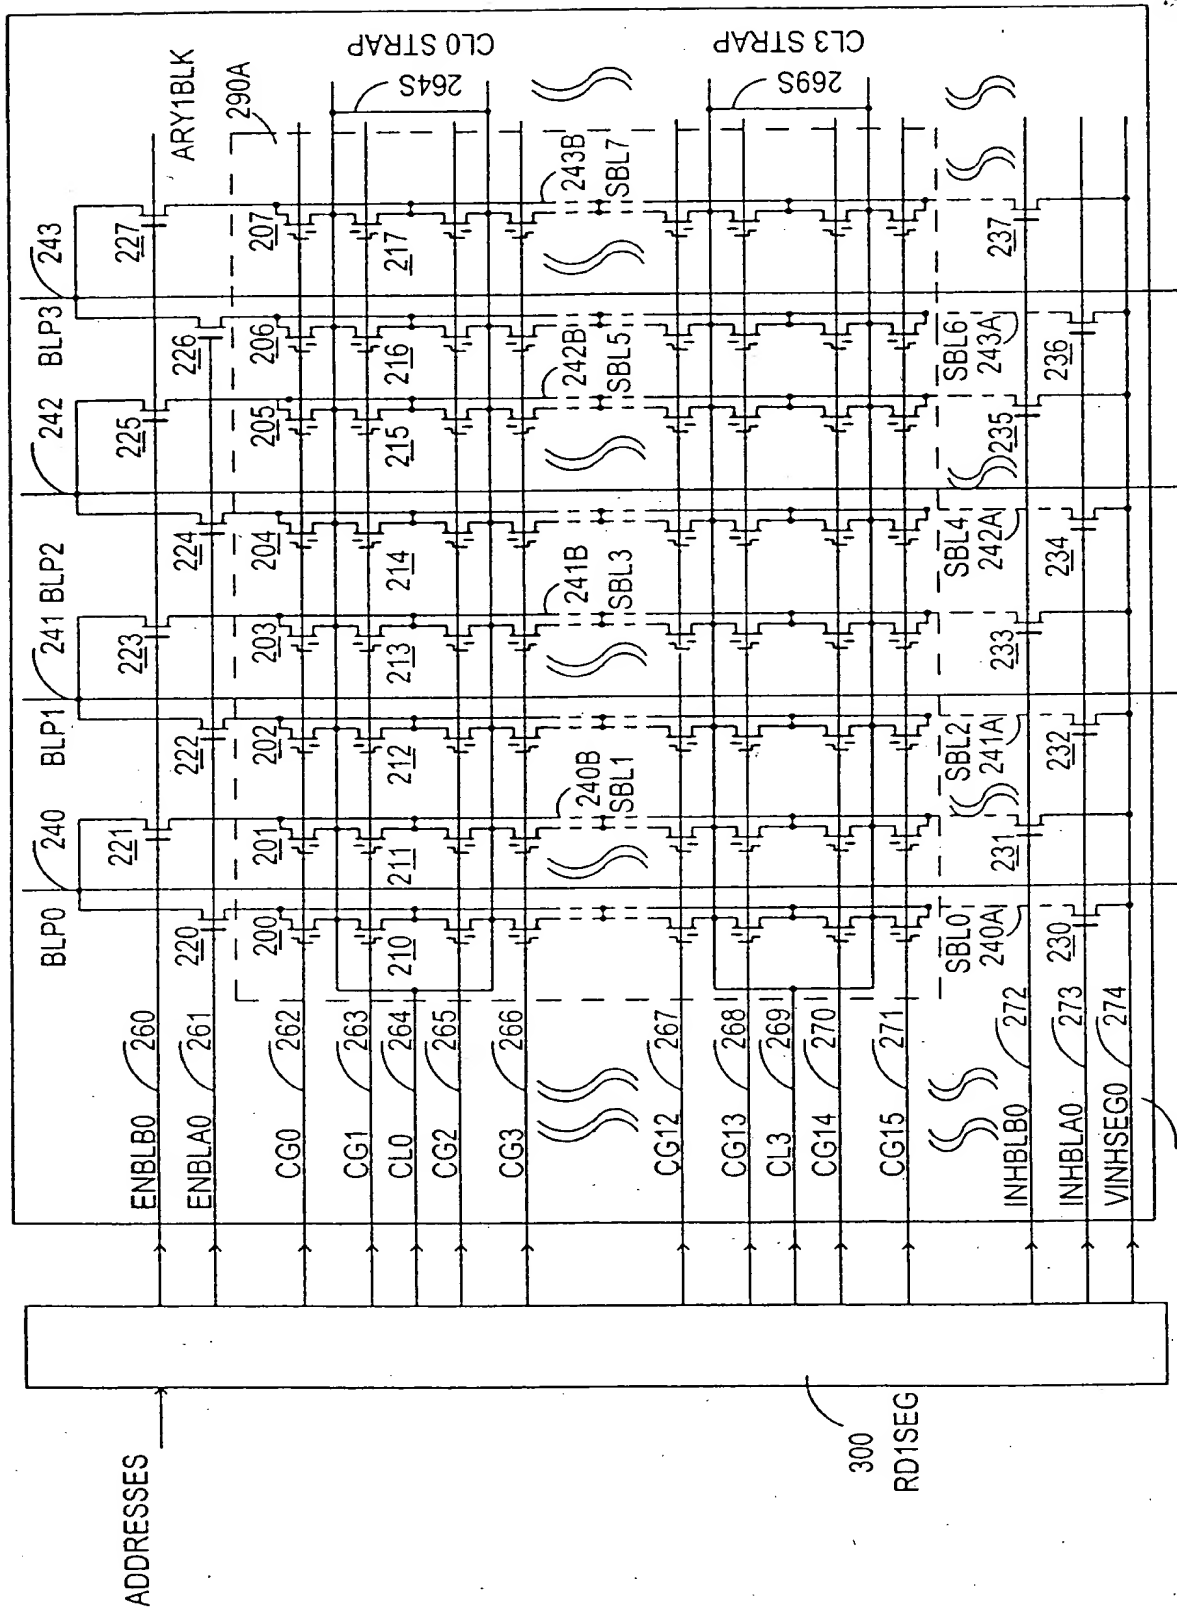 ADDRESSES
300
RD1SEG
ENBLB0
260
ENBLA0
261
CG0
262
CG1
263
CL0
264
CG2
265
CG3
266
CG12
267
CG13
268
CL3
269
CG14
270
CG15
271
INHBLB0
272
INHBLA0
273
VINHSEG0
274
BLP0
240
BLP1
241
BLP2
242
BLP3
243
220
221
222
223
224
225
226
227
ARY1BLK
290A
200
201
202
203
204
205
206
207
210
211
212
213
214
215
216
217
CL0 STRAP
264S
240B
SBL1
241B
SBL3
242B
SBL5
243B
SBL7
CL3 STRAP
269S
SBL0
240A
SBL2
241A
SBL4
242A
SBL6
243A
230
231
232
233
234
235
236
237